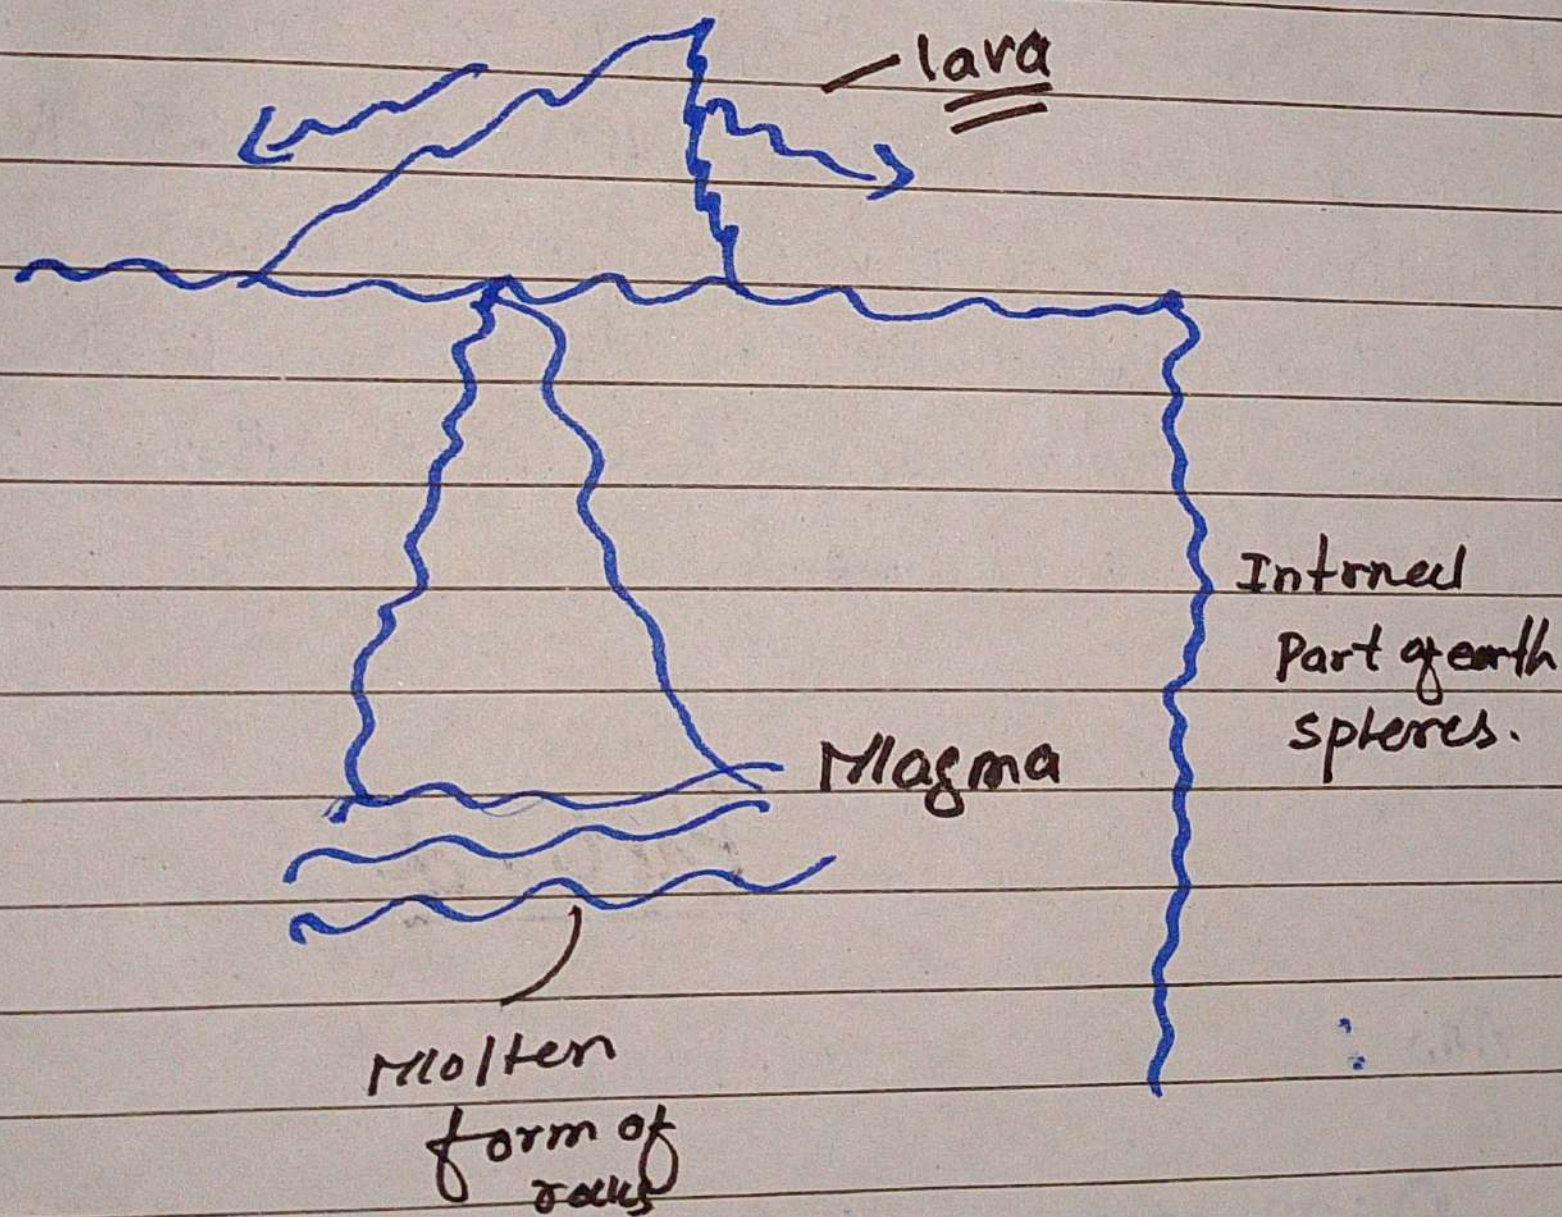 lava
Intrned
Part of earth
spheres.
Magma
Molten
form of
rocks